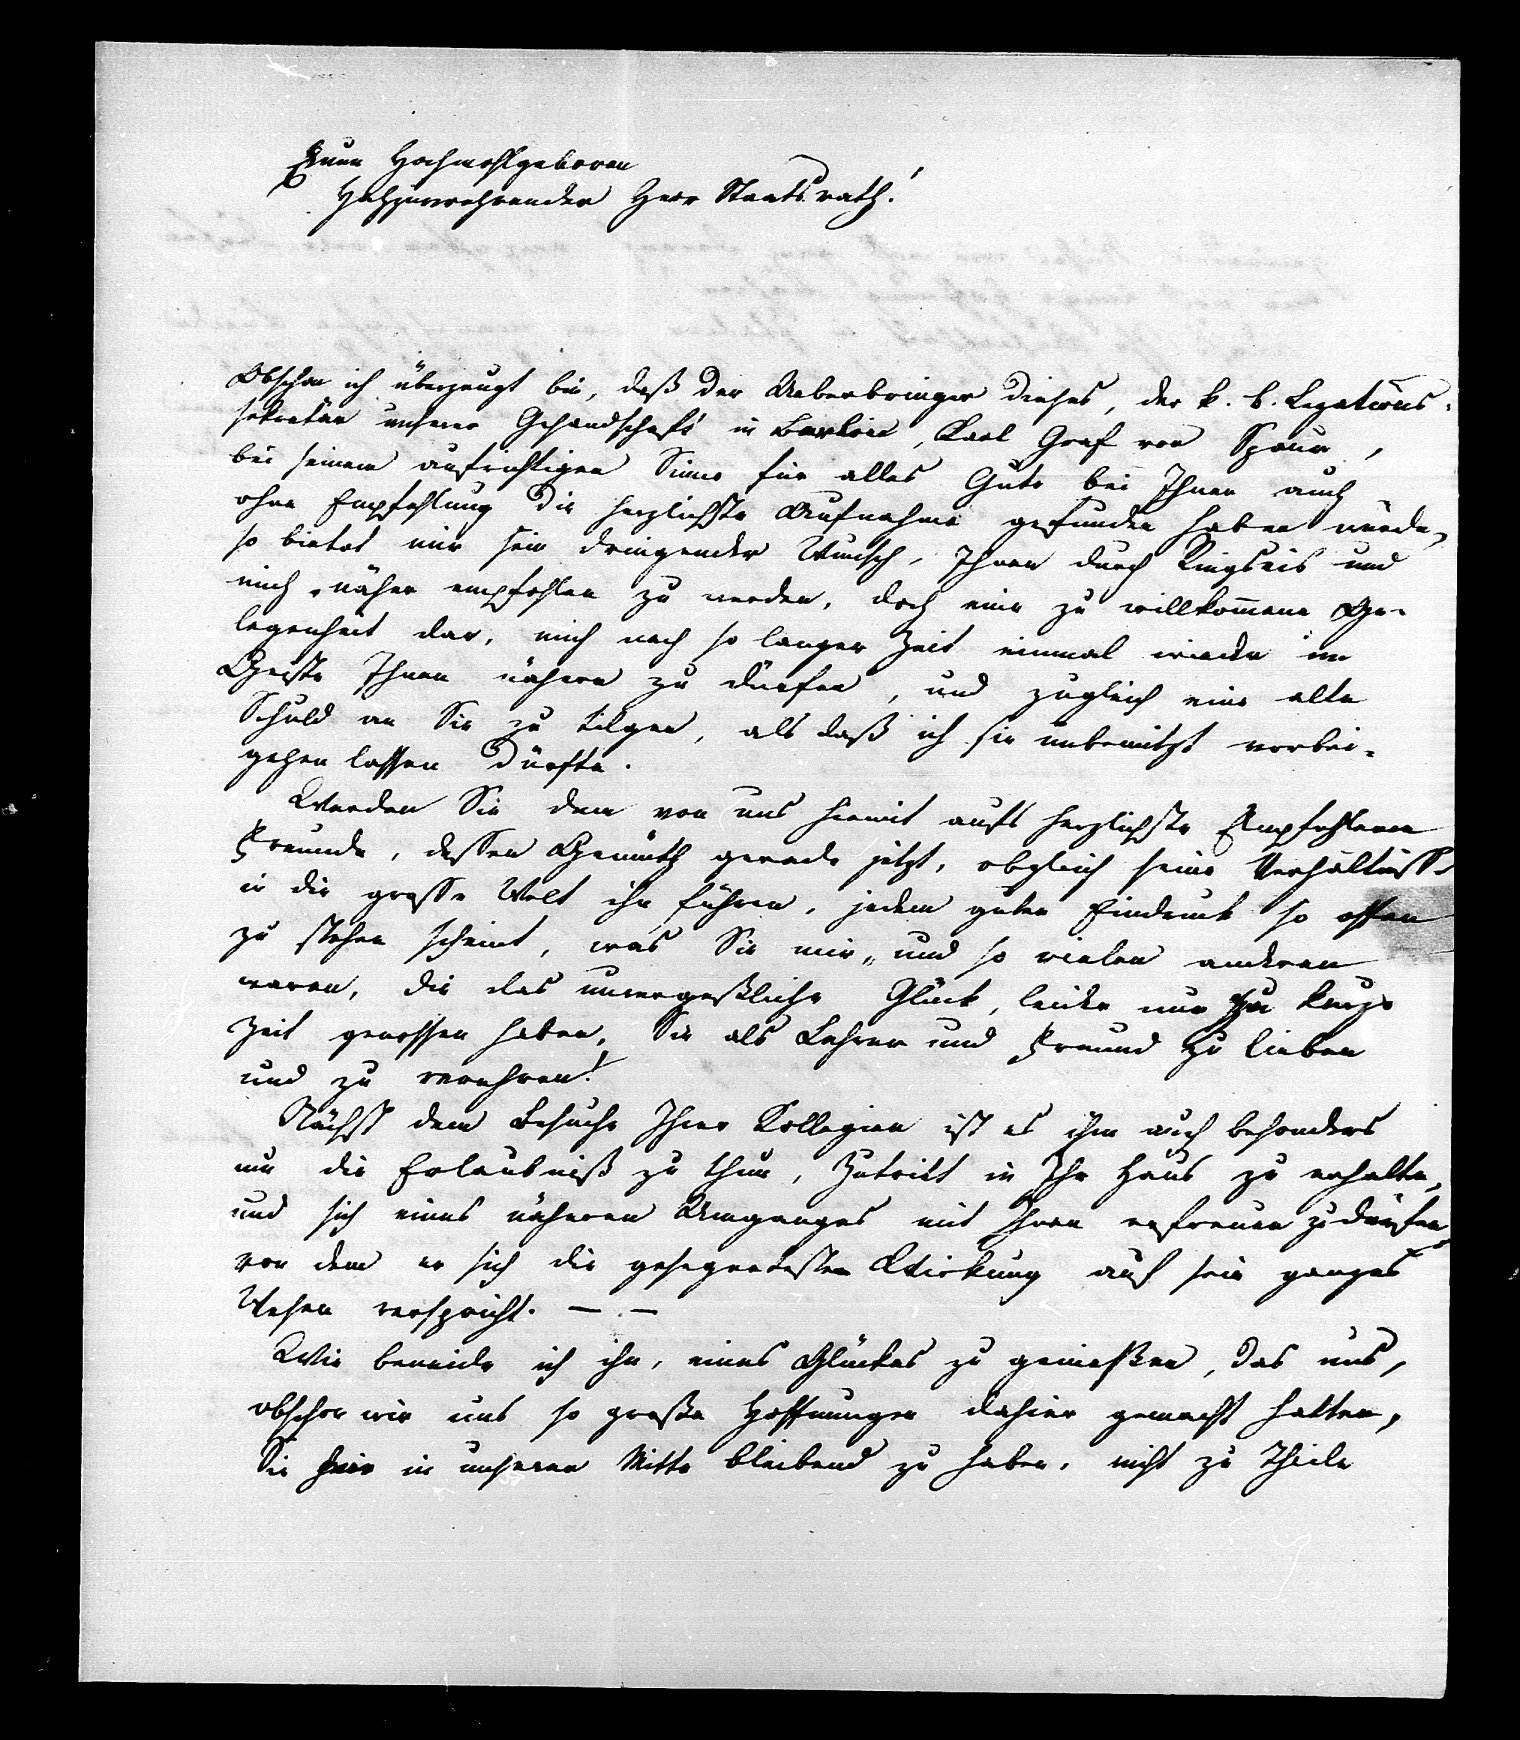 Euer Hochwohlgeboren
Hochzuverehrender Herr Staatsrath!
Obschon ich überzeugt bin, daß der Ueberbringer dieses, der k. b. Legations-
sekretär unserer Gesandschaft in Berlin, Karl Graf von Spaur,
bei seinem aufrichtigen Sinne für alles Gute bei Ihnen auch
ohne Empfehlung die herzlichste Aufnahme gefunden haben würde,
so bietet mir sein dringender Wunsch, Ihnen durch Ringseis und
mich näher empfohlen zu werden, doch eine zu willkommene Ge-
legenheit dar, mich nach so langer Zeit einmal wieder im
Geiste Ihnen nähern zu dürfen, und zugleich eine alte
Schuld an Sie zu tilgen, als daß ich sie unbenützt vorbei-
gehen lassen dürfte.
Werden Sie dem von uns hiemit aufs herzlichste Empfohlenen
Freunde, dessen Gemüth gerade jetzt, obgleich seine Verhältnisse
in die grosse Welt ihn führen, jedem guten Eindruck so offen
zu stehen scheint, was Sie mir, und so vielen anderen
waren, die das unvergeßliche Glück, leider nur zu kurze
Zeit genossen haben, Sie als Lehrer und Freund zu lieben
und zu verehren!
Nächst dem Besuche Ihrer Kollegien ist es ihm auch besonders
um die Erlaubniß zu thun, Zutritt in Ihr Haus zu erhalten,
und sich eines näheren Umganges mit Ihnen erfreuen zu dürfen,
von dem er sich die gesegnetesten Wirkung auf sein ganzes
Wesen verspricht. — . —
Wie beneide ich ihn, eines Glückes zu genießen, das uns,
obschon wir uns so große Hoffnungen dahier gemacht hatten,
Sie hier in unserer Mitte bleibend zu haben, nicht zu Theile